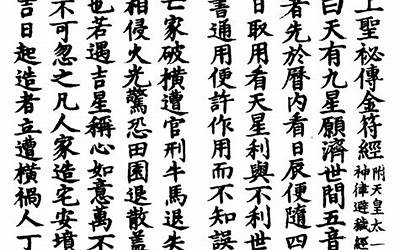 上聖祕傳金符經 附天皇太一
神律避穢經
曰天有九星願濟世間五音
者先於曆内看日辰便隨四
日取用看天星利與不利世
書通用便許作用而不知誤
亡家破橫遭官刑牛馬退失
相侵火光驚恐田園退散蓋
也若遇吉星稱心如意萬不
不可忽之凡人家造宅安墳
吉日起造者立遭橫禍人丁